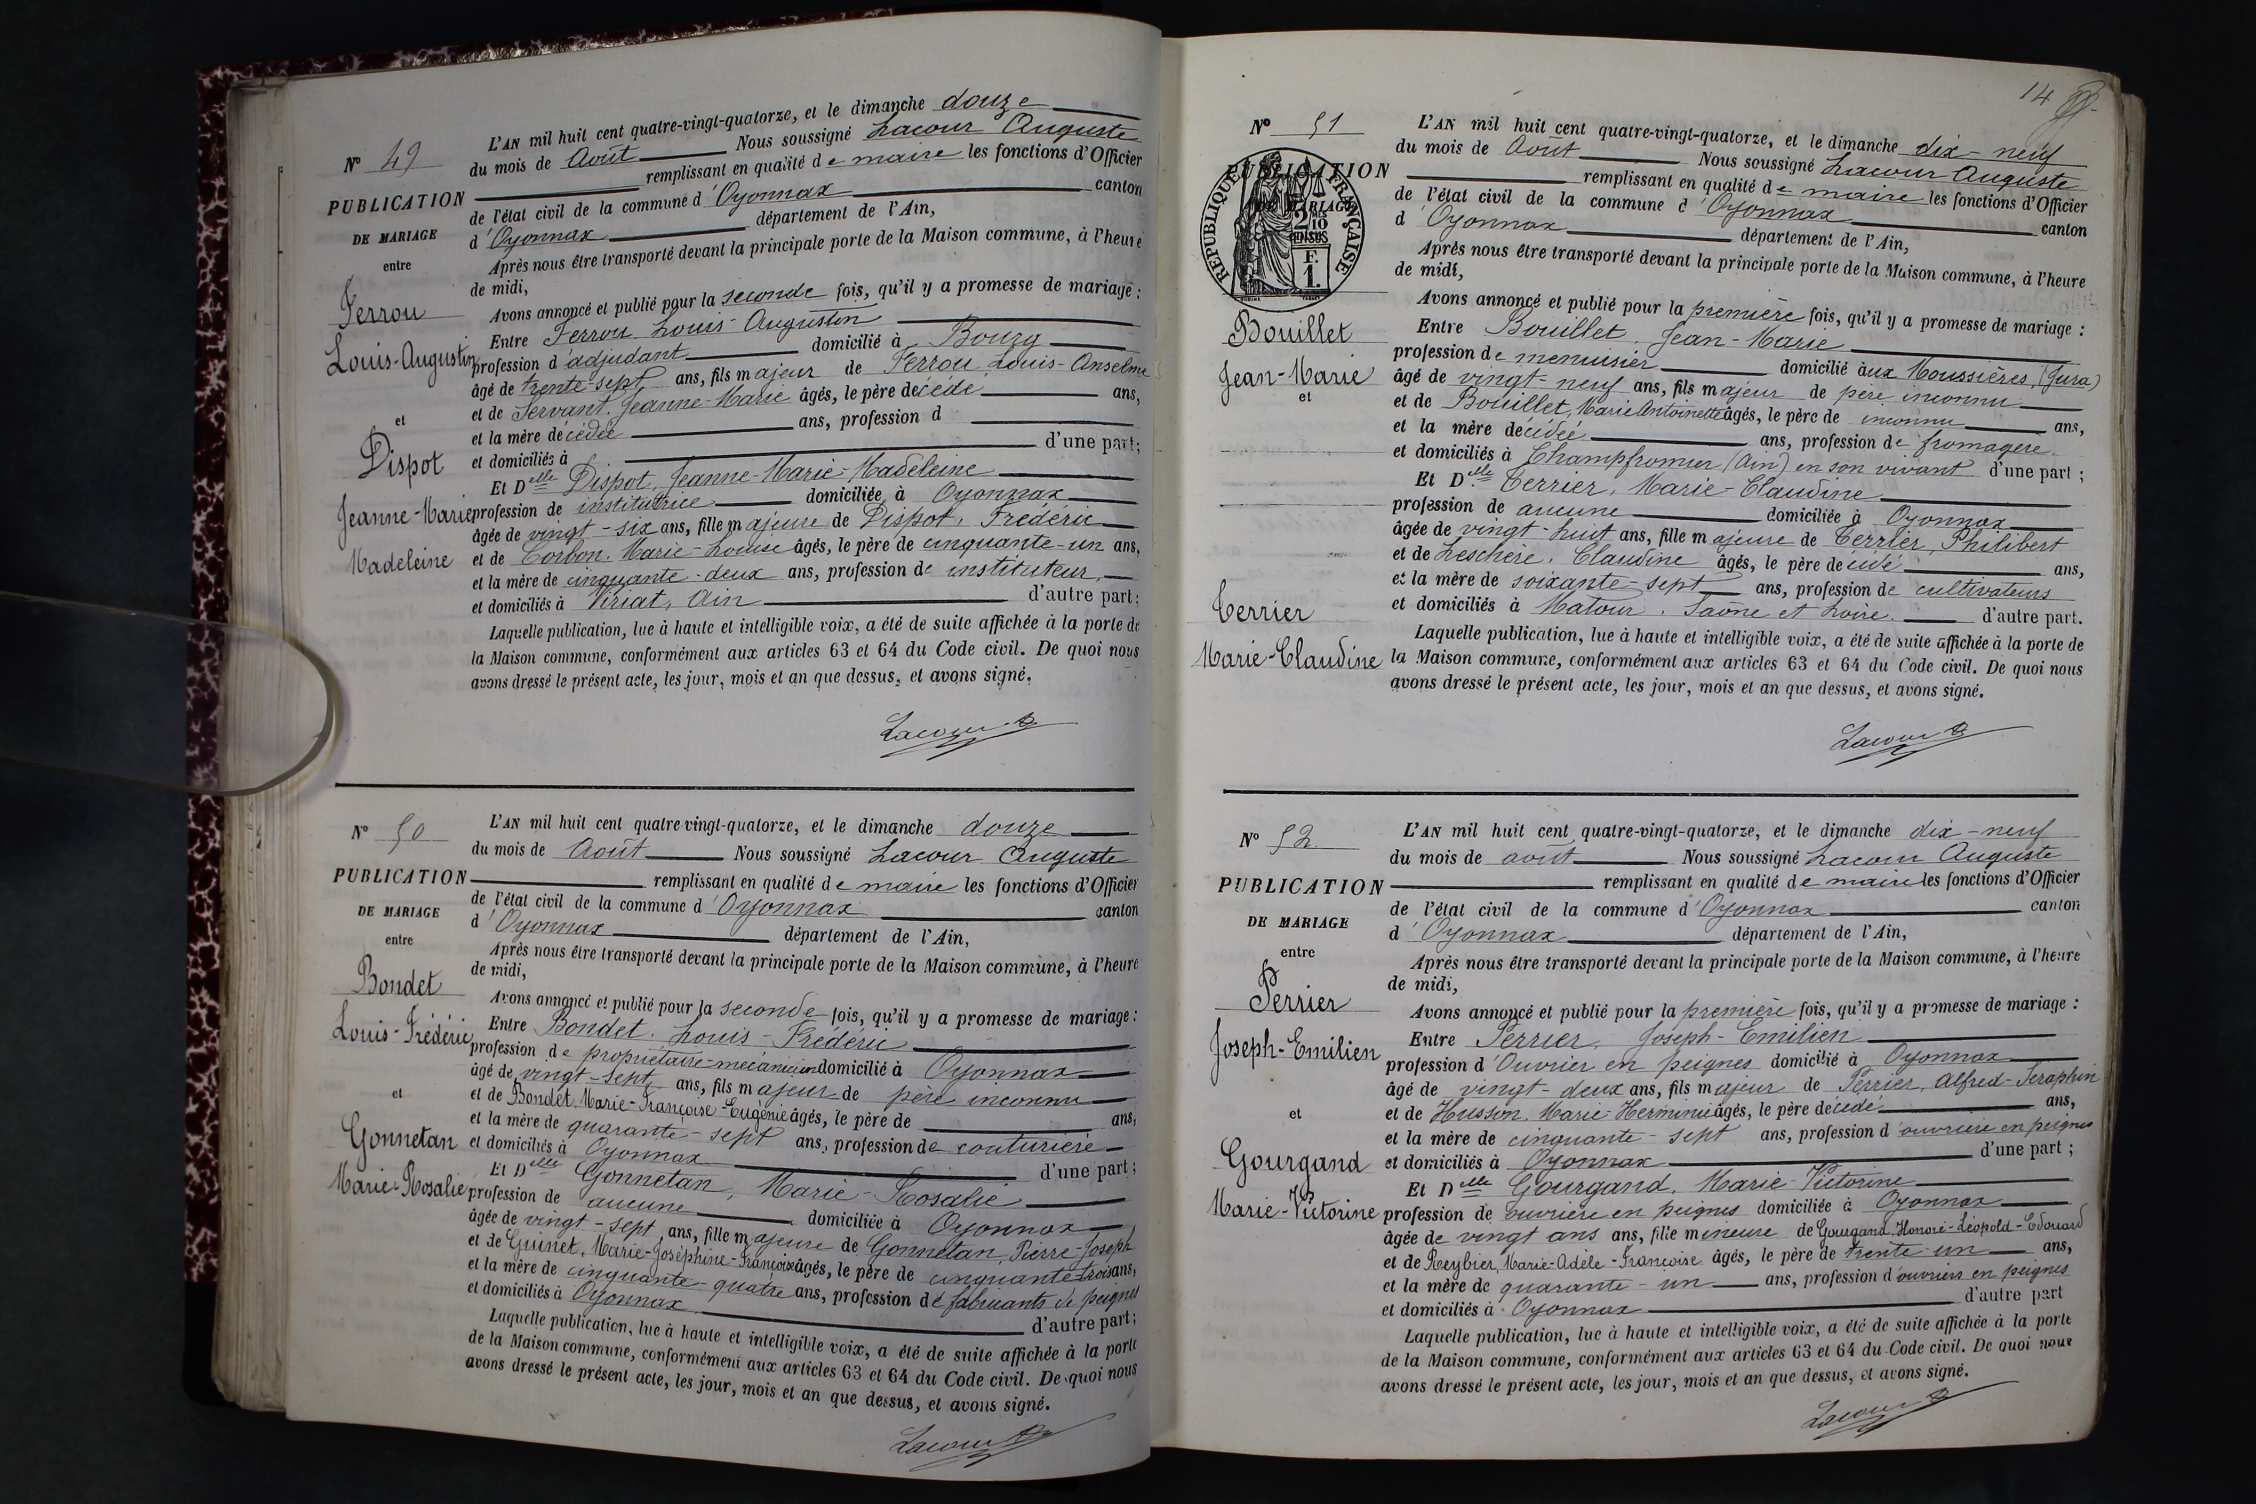 L'AN mil huit cent quatre-vingt-quatorze, et le dimanche douze
N° 49
du mois de Août Nous soussigné Lacour Auguste
PUBLICATION
remplissant en qualité de maire les fonctions d'Officier
de l'état civil de la commune d'Oyonnax canton
DE MARIAGE
d'Oyonnax département de l'Ain,
entre
Après nous être transporté devant la principale porte de la Maison commune, à l'heure
de midi,
Avons annoncé et publié pour la seconde fois, qu'il y a promesse de mariage :
Ferrou
Louis-Augustin
Entre Ferrou Louis-Augustin
profession d'adjudant domicilié à Bourg
âgé de trente-sept ans, fils majeur de Ferrou Louis-Anselme
et de Servant. Jeanne-Marie âgés, le père décédé ans,
et
et la mère décédée ans, profession d
Dispot
et domiciliés à d'une part;
Jeanne-Marie
Madeleine
Et Delle Dispot, Jeanne-Marie-Madeleine
profession de institutrice domiciliée à Oyonnax
âgée de vingt-six ans, fille majeure de Dispot, Frédéric
et de Corbon. Marie-Louise âgés, le père de cinquante-un ans,
et la mère de cinquante-deux ans, profession de instituteur
et domiciliés à Viriat, Ain d'autre part;
Laquelle publication, lue à haute et intelligible voix, a été de suite affichée à la porte de
la Maison commune, conformément aux articles 63 et 64 du Code civil. De quoi nous
avons dressé le présent acte, les jour, mois et an que dessus, et avons signé.
Lacour A
N° 50
L'AN mil huit cent quatre-vingt-quatorze, et le dimanche douze
du mois de Août Nous soussigné Lacour Auguste
PUBLICATION
remplissant en qualité de maire les fonctions d'Officier
de l'état civil de la commune d'Oyonnax canton
DE MARIAGE
d'Oyonnax département de l'Ain,
entre
Après nous être transporté devant la principale porte de la Maison commune, à l'heure
de midi,
Bondet
Louis-Frédéric
Avons annoncé et publié pour la seconde fois, qu'il y a promesse de mariage :
Entre Bondet. Louis-Frédéric
profession de propriétaire-mécanicien domicilié à Oyonnax
âgé de vingt-sept ans, fils majeur de père inconnu
et
et de Bondet Marie-Françoise-Eugénie âgés, le père de ans,
et la mère de quarante-sept ans, profession de couturière
Gonnetan
Marie-Rosalie
et domiciliés à Oyonnax d'une part;
Et Delle Gonnetan, Marie-Rosalie
profession de aucune domiciliée à Oyonnax
âgée de vingt-sept ans, fille majeure de Gonnetan, Pierre-Joseph
et de Guinet, Marie-Joséphine-Françoise âgés, le père de cinquante-trois ans,
et la mère de cinquante-quatre ans, profession de fabricants de peignes
et domiciliés à Oyonnax d'autre part;
Laquelle publication, lue à haute et intelligible voix, a été de suite affichée à la porte
de la Maison commune, conformément aux articles 63 et 64 du Code civil. De quoi nous
avons dressé le présent acte, les jour, mois et an que dessus, et avons signé.
Lacour A
14
N° 51
L'AN mil huit cent quatre-vingt-quatorze, et le dimanche dix-neuf
du mois de Août Nous soussigné Lacour Auguste
PUBLICATION
remplissant en qualité de maire les fonctions d'Officier
de l'état civil de la commune d'Oyonnax
DE MARIAGE
RÉPUBLIQUE FRANÇAISE
2/10 EN SUS
F. 1.
d'Oyonnax canton
département de l'Ain,
Après nous être transporté devant la principale porte de la Maison commune, à l'heure
de midi,
Avons annoncé et publié pour la première fois, qu'il y a promesse de mariage :
Bouillet
Jean-Marie
et
Entre Bouillet. Jean-Marie
profession de menuisier domicilié aux Moussières, (Jura)
âgé de vingt-neuf ans, fils majeur de père inconnu
et de Bouillet, Marie Antoinette âgés, le père de inconnu ans,
et la mère décédée ans, profession de fromagère
et domiciliés à Champfromier (Ain) en son vivant d'une part ;
Et Delle Terrier, Marie-Claudine
profession de aucune domiciliée à Oyonnax
âgée de vingt-huit ans, fille majeure de Terrier, Philibert
et de Leschère. Claudine âgés, le père décédé ans,
et la mère de soixante-sept ans, profession de cultivateurs
Terrier
Marie-Claudine
et domiciliés à Matour. Saône et Loire. d'autre part.
Laquelle publication, lue à haute et intelligible voix, a été de suite affichée à la porte de
la Maison commune, conformément aux articles 63 et 64 du Code civil. De quoi nous
avons dressé le présent acte, les jour, mois et an que dessus, et avons signé.
Lacour A
N° 52
L'AN mil huit cent quatre-vingt-quatorze, et le dimanche dix-neuf
du mois de août Nous soussigné Lacour Auguste
PUBLICATION
remplissant en qualité de maire les fonctions d'Officier
de l'état civil de la commune d'Oyonnax canton
DE MARIAGE
d'Oyonnax département de l'Ain,
entre
Après nous être transporté devant la principale porte de la Maison commune, à l'heure
de midi,
Perrier
Joseph-Emilien
Avons annoncé et publié pour la première fois, qu'il y a promesse de mariage :
Entre Perrier, Joseph-Emilien
profession d'Ouvrier en peignes domicilié à Oyonnax
âgé de vingt-deux ans, fils majeur de Perrier, Alfred-Séraphin
et
et de Husson. Marie-Herminie âgés, le père décédé ans,
et la mère de cinquante-sept ans, profession d'ouvrière en peignes
Gourgand
Marie-Victorine
et domiciliés à Oyonnax d'une part ;
Et Delle Gourgand, Marie-Victorine
profession de ouvrière en peignes domiciliée à Oyonnax
âgée de vingt ans ans, fille mineure de Gourgand Honoré-Léopold-Edouard
et de Reybier, Marie-Adèle-Françoise âgés, le père de trente-un ans,
et la mère de quarante-un ans, profession d'ouvriers en peignes
et domiciliés à Oyonnax d'autre part
Laquelle publication, lue à haute et intelligible voix, a été de suite affichée à la porte
de la Maison commune, conformément aux articles 63 et 64 du Code civil. De quoi nous
avons dressé le présent acte, les jour, mois et an que dessus, et avons signé.
Lacour A